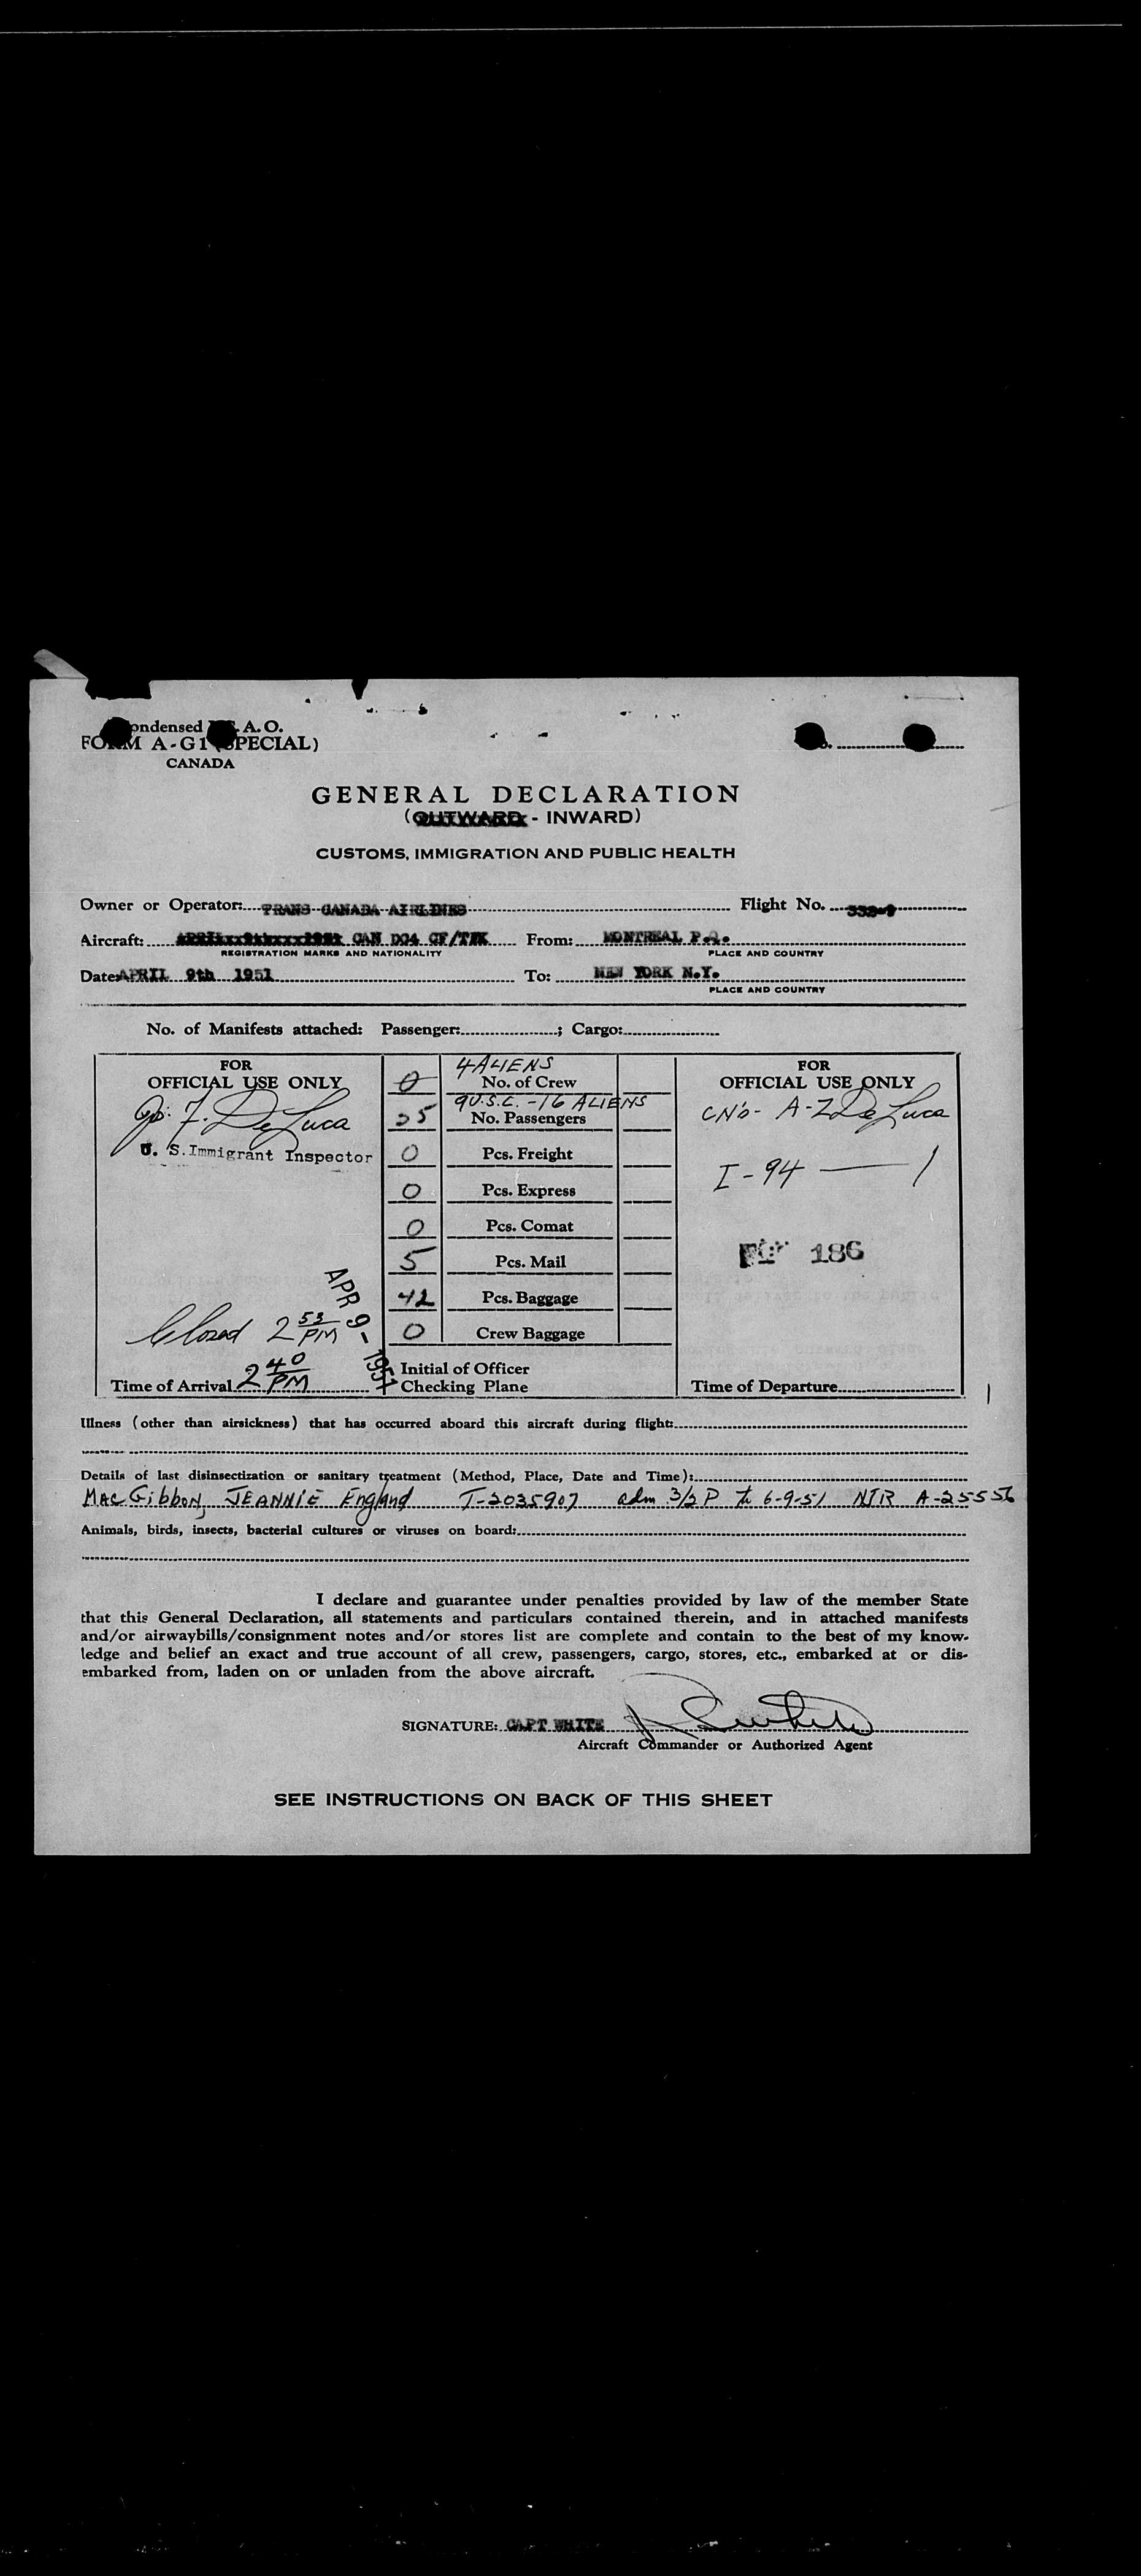 Condensed I.C.A.O.
FORM A-G1 (SPECIAL)
CANADA
GENERAL DECLARATION
(OUTWARD - INWARD)
CUSTOMS, IMMIGRATION AND PUBLIC HEALTH
Owner or Operator: TRANS CANADA AIRLINES Flight No.
Aircraft: CAN DC4 CF/TFK From: MONTREAL P.Q.
REGISTRATION MARKS AND NATIONALITY PLACE AND COUNTRY
Date: APRIL 9th 1951 To: NEW YORK N.Y.
PLACE AND COUNTRY
No. of Manifests attached: Passenger: ; Cargo:
FOR 4 ALIENS FOR
OFFICIAL USE ONLY 0 No. of Crew OFFICIAL USE ONLY
9 U.S.C. - 16 ALIENS
F. De Luca 25 No. Passengers CN's - A-Z De Luca
U. S. Immigrant Inspector 0 Pcs. Freight
I-94 — 1
0 Pcs. Express
0 Pcs. Comat
186
5 Pcs. Mail
APR 9 - 1951
42 Pcs. Baggage
Closed 2 53 PM 0 Crew Baggage
Initial of Officer
Time of Arrival 2 40 PM Checking Plane Time of Departure
Illness (other than airsickness) that has occurred aboard this aircraft during flight:
Details of last disinsectization or sanitary treatment (Method, Place, Date and Time):
MacGibbon, JEANNIE England T-2035907 adm 3/2 P to 6-9-51 NTR A-25556
Animals, birds, insects, bacterial cultures or viruses on board:
I declare and guarantee under penalties provided by law of the member State
that this General Declaration, all statements and particulars contained therein, and in attached manifests
and/or airwaybills/consignment notes and/or stores list are complete and contain to the best of my know-
ledge and belief an exact and true account of all crew, passengers, cargo, stores, etc., embarked at or dis-
embarked from, laden on or unladen from the above aircraft.
SIGNATURE: CAPT WHITE
Aircraft Commander or Authorized Agent
SEE INSTRUCTIONS ON BACK OF THIS SHEET